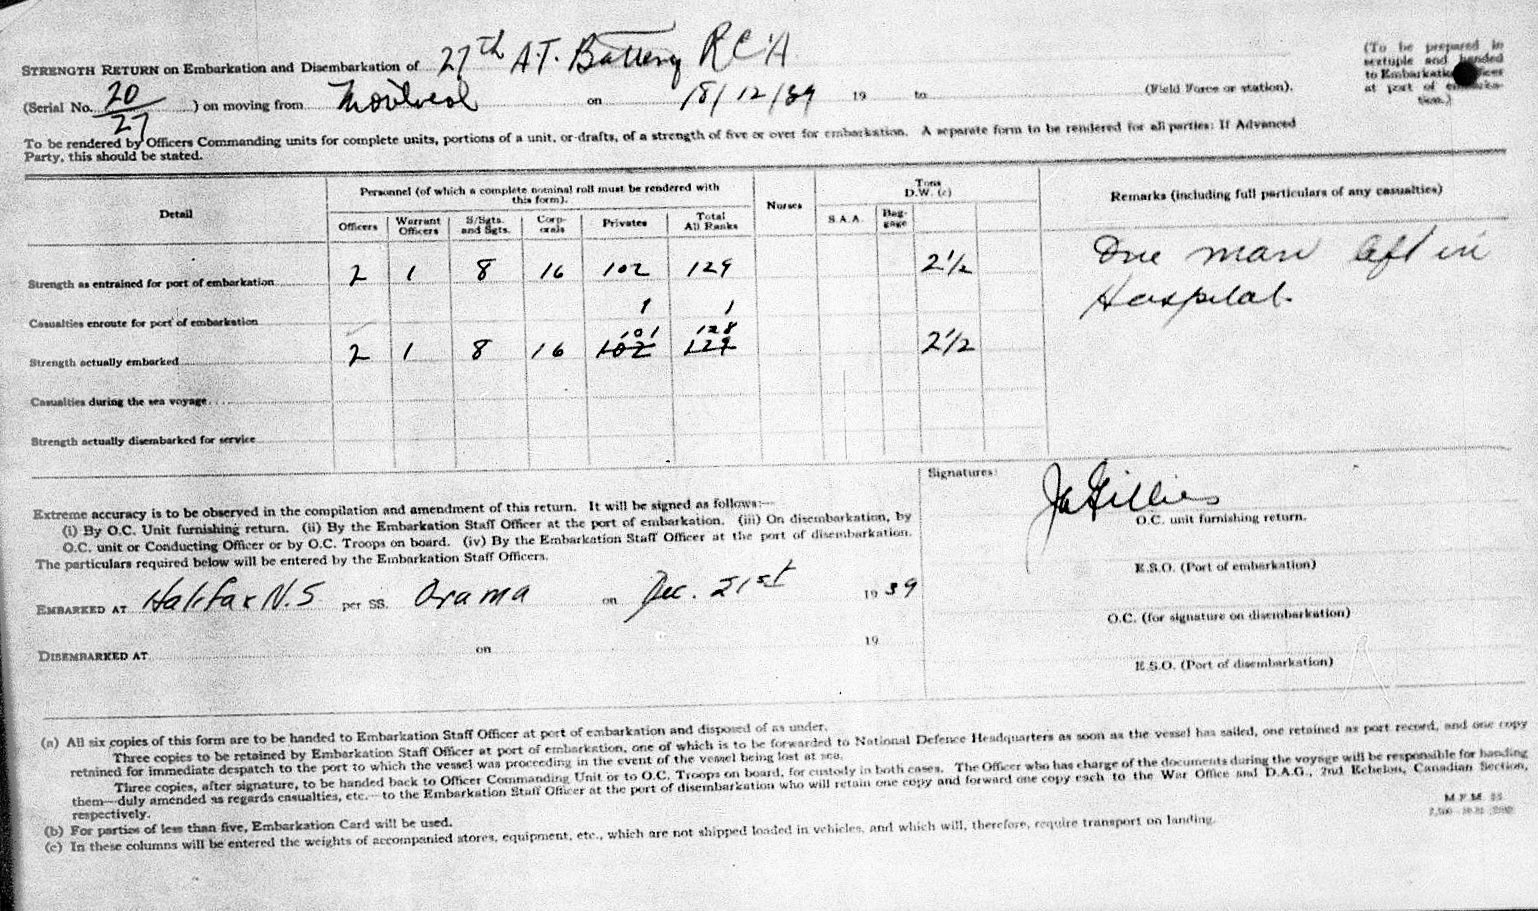 STRENGTH RETURN on Embarkation and Disembarkation of 27th A.T. Battery RCA
(To be prepared in
sextuple and handed
to Embarkation Officer
at port of embarka-
tion.)
(Serial No. 20/27 ) on moving from Montreal on 18/12/39 19 to (Field Force or station).
To be rendered by Officers Commanding units for complete units, portions of a unit, or drafts, of a strength of five or over for embarkation. A separate form to be rendered for all parties: If Advanced
Party, this should be stated.
Detail
Personnel (of which a complete nominal roll must be rendered with
this form).
Nurses
Tons
D.W. (c)
Remarks (including full particulars of any casualties)
Officers Warrant Officers S/Sgts. and Sgts. Corp-orals Privates Total All Ranks S.A.A. Bag-gage
Strength as entrained for port of embarkation 2 1 8 16 102 129 2 1/2
One man left in
Hospital.
Casualties enroute for port of embarkation 1 1
101 128
Strength actually embarked 2 1 8 16 102 129 2 1/2
Casualties during the sea voyage
Strength actually disembarked for service
Signatures:
Extreme accuracy is to be observed in the compilation and amendment of this return. It will be signed as follows:—
(i) By O.C. Unit furnishing return. (ii) By the Embarkation Staff Officer at the port of embarkation. (iii) On disembarkation, by
O.C. unit or Conducting Officer or by O.C. Troops on board. (iv) By the Embarkation Staff Officer at the port of disembarkation.
The particulars required below will be entered by the Embarkation Staff Officers.
Gillies
O.C. unit furnishing return.
E.S.O. (Port of embarkation)
EMBARKED AT Halifax N.S per SS. Orama on Dec. 21st 1939
O.C. (for signature on disembarkation)
DISEMBARKED AT on 19
E.S.O. (Port of disembarkation)
(a) All six copies of this form are to be handed to Embarkation Staff Officer at port of embarkation and disposed of as under.
Three copies to be retained by Embarkation Staff Officer at port of embarkation, one of which is to be forwarded to National Defence Headquarters as soon as the vessel has sailed, one retained as port record, and one copy
retained for immediate despatch to the port to which the vessel was proceeding in the event of the vessel being lost at sea.
Three copies, after signature, to be handed back to Officer Commanding Unit or to O.C. Troops on board, for custody in both cases. The Officer who has charge of the documents during the voyage will be responsible for handing
them—duly amended as regards casualties, etc.—to the Embarkation Staff Officer at the port of disembarkation who will retain one copy and forward one copy each to the War Office and D.A.G., 2nd Echelon, Canadian Section,
respectively.
(b) For parties of less than five, Embarkation Card will be used.
(c) In these columns will be entered the weights of accompanied stores, equipment, etc., which are not shipped loaded in vehicles, and which will, therefore, require transport on landing.
M.F.M.